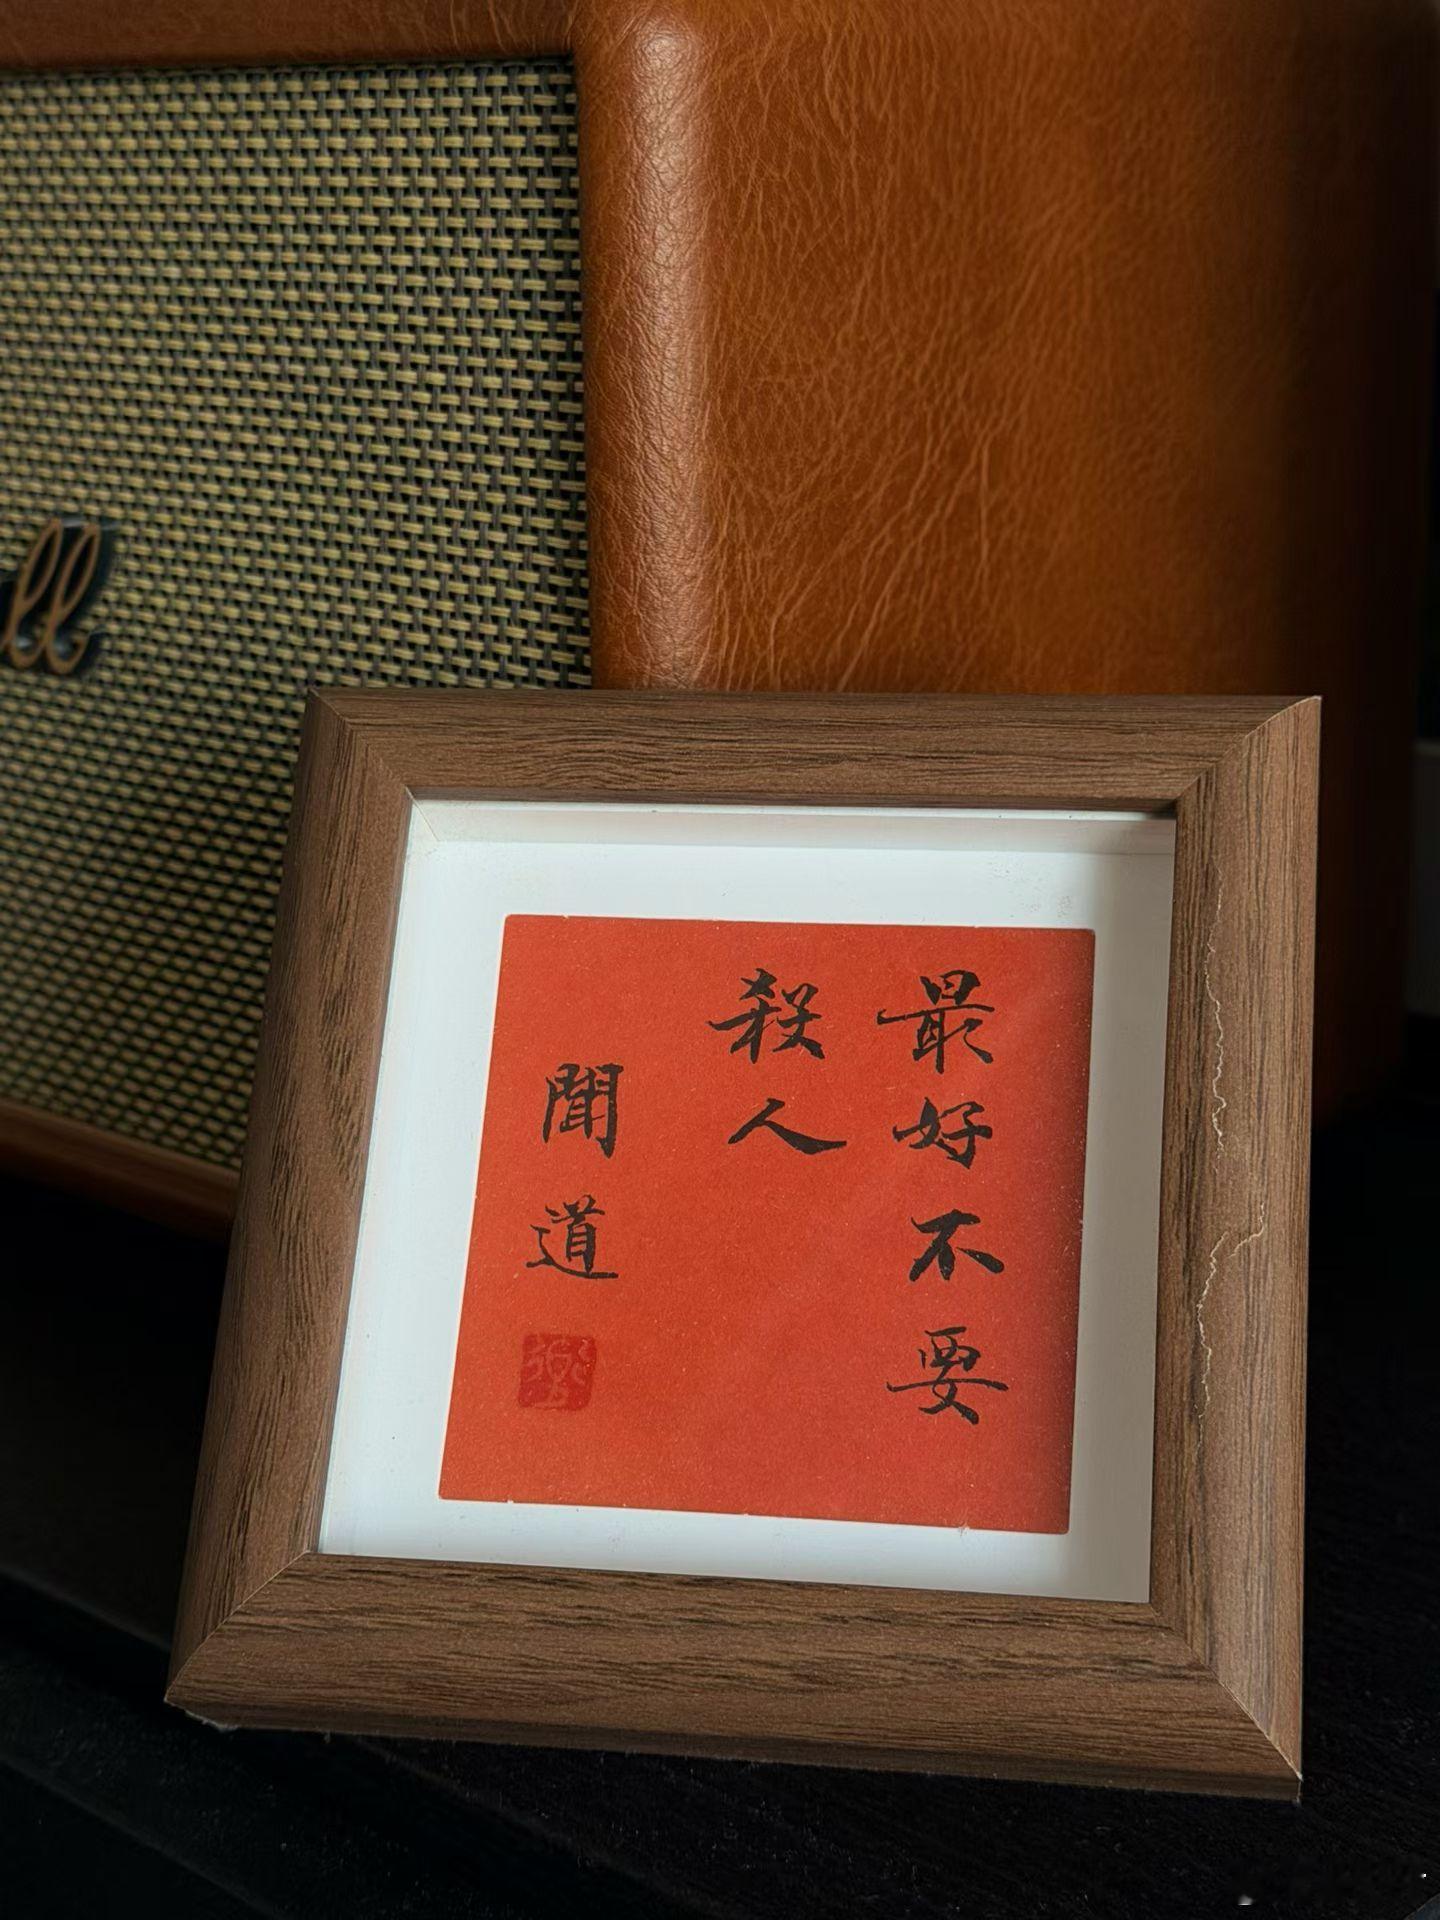 最好不要
殺人
聞道
ll